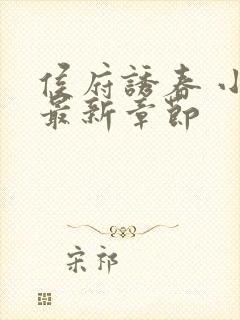 侯府誘春 小
最新章節
宋祁